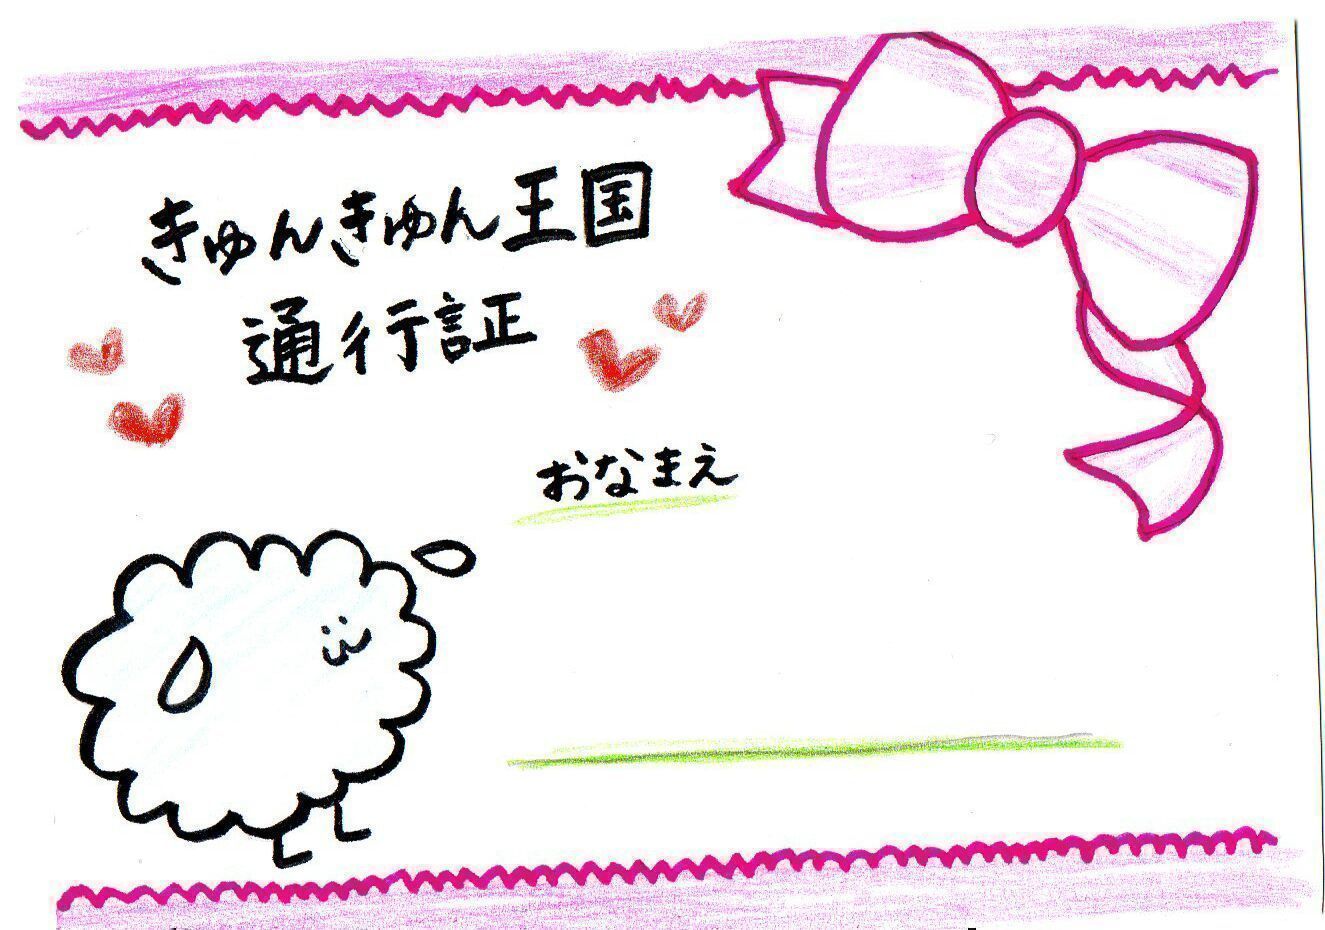 きゅんきゅん王国
通行証
おなまえ